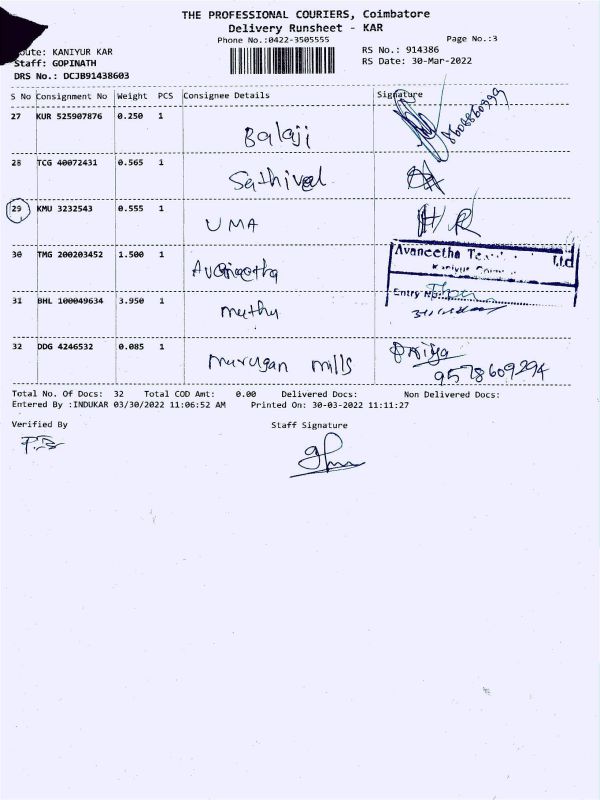 THE PROFESSIONAL COURIERS, Coimbatore
Delivery Runsheet - KAR
Phone No.:0422-3505555
Page No.:3
oute: KANIYUR KAR
RS No.: 914386
Staff: GOPINATH
RS Date: 30-Mar-2022
DRS No.: DCJB91438603
S No Consignment No Weight PCS Consignee Details Signature
27 KUR 525907876 0.250 1 Balaji
28 TCG 40072431 0.565 1 Sathivel
29 KMU 3232543 0.555 1 UMA
30 TMG 200203452 1.500 1 Avaneetha
Avaneetha Ltd
Entry No
31 BHL 100049634 3.950 1 Muthu
32 DDG 4246532 0.085 1 Murugan mills Priya
9578609294
Total No. Of Docs: 32 Total COD Amt: 0.00 Delivered Docs: Non Delivered Docs:
Entered By :INDUKAR 03/30/2022 11:06:52 AM Printed On: 30-03-2022 11:11:27
Verified By Staff Signature